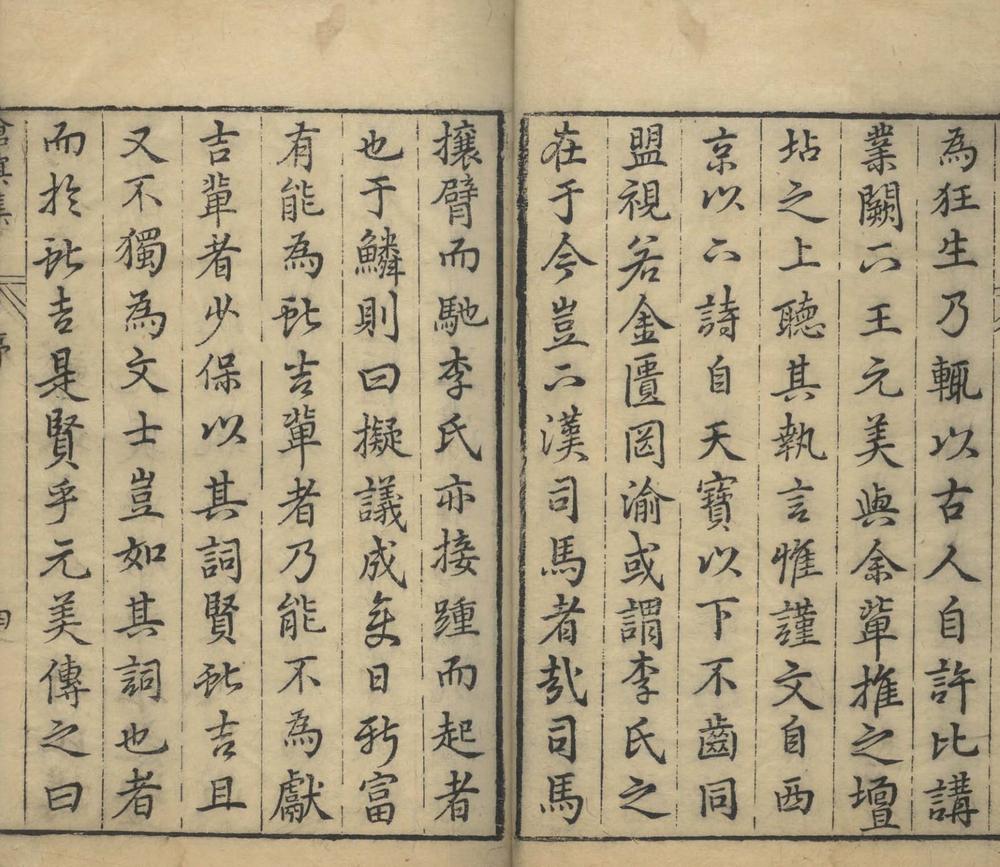 為狂生乃輒以古人自許比講
業闕下王元美與余輩推之壇
坫之上聽其執言惟謹文自西
京以下詩自天寶以下不齒同
盟視若金匱罔渝或謂李氏之
在于今豈下漢司馬者哉司馬
攘臂而馳李氏亦接踵而起者
也于鱗則曰擬議成變日新富
有能為獻吉輩者乃能不為獻
吉輩者少保以其詞賢獻吉且
又不獨為文士豈如其詞也者
而於獻吉是賢乎元美傳之曰
滄溟集 序 四